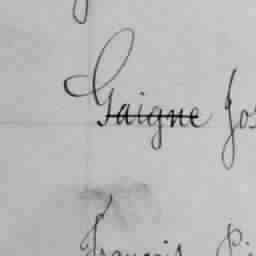 Gaigne Jos
François